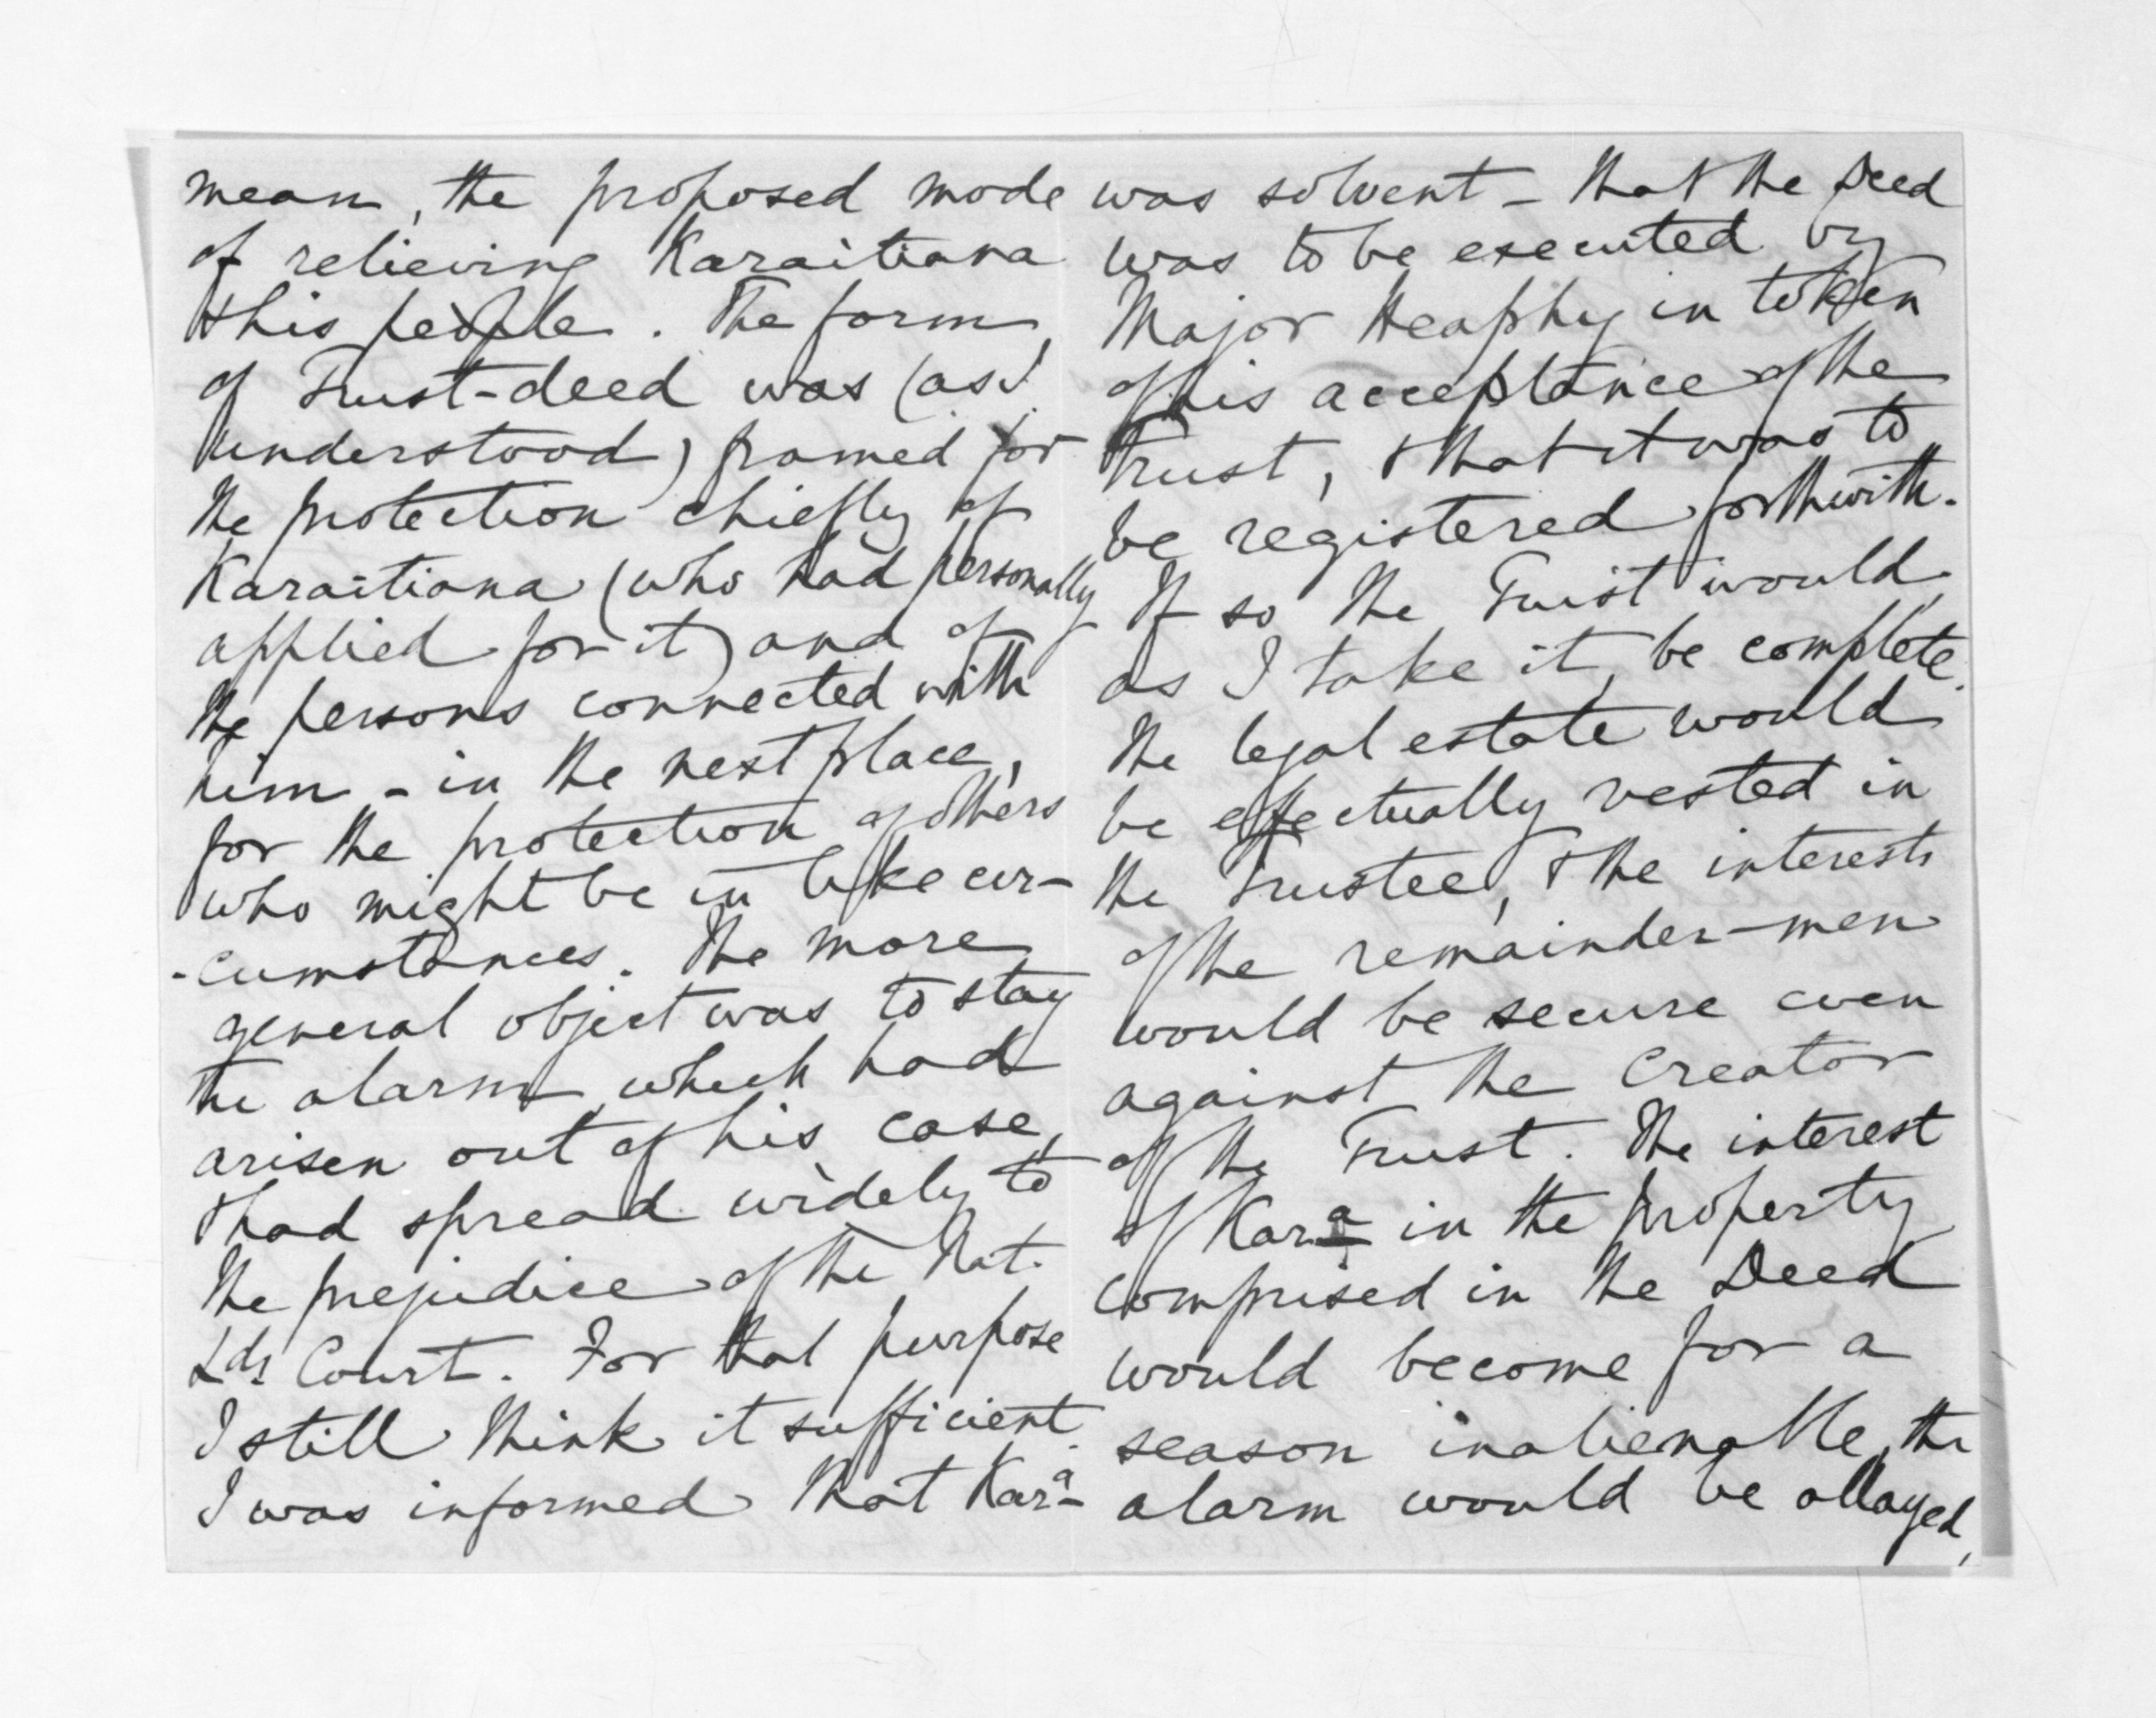 mean, the proposed mode
of relieving Karaitiana
& his people. The form
of Trust-deed was (as I
understood) framed for
the protection chiefly of
Karaitiana (who had personally
applied for it) and of
the persons connected with
him - in the next place,
for the protection of others
who might be in like cir-
-cumstances. The more
general object was to stay
the alarm which had
arisen out of his case,
& had spread widely to
the prejudice of the Nat.
Lds Court. For that purpose
I still think it sufficient.
I was informed that Kara
was solvent - that the Deed
was to be executed by
Major Heaphy in token
of his acceptance of the
Trust, & that it was to
be registered forthwith.
If so the Trust would,
as I take it, be complete.
The legal estate would
be effectually vested in
the Trustee, & the interests
of the remainder-men
would be secure even
against the Creator
of the Trust. The interest
of Kara in the property
comprised in the Deed
would become for a
season inalienable, the
alarm would be allayed,